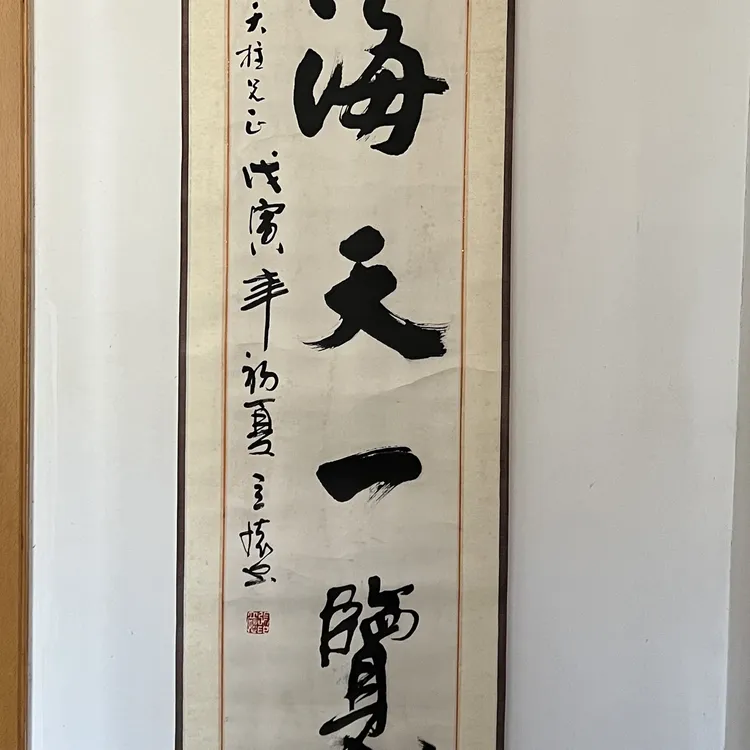 海天一覽
天柱兄正 戊寅年初夏 立懷書